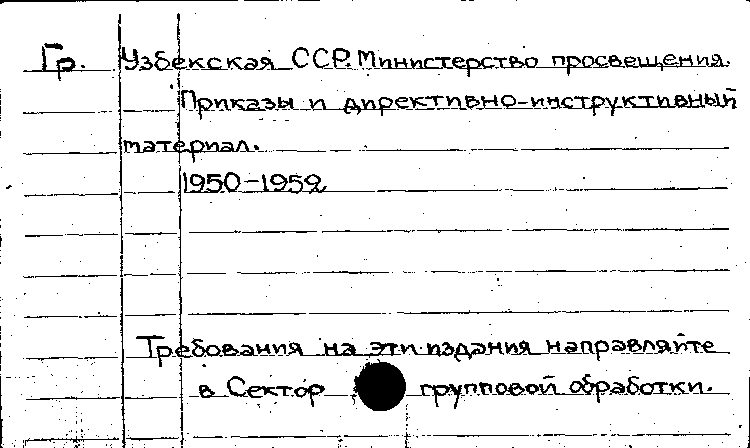 Гр. Узбекская ССР. Министерство просвещения.
Приказы и директивно-инструктивный
материал.
1950-1952
Требования на эти издания направляйте
в Сектор групповой обработки.